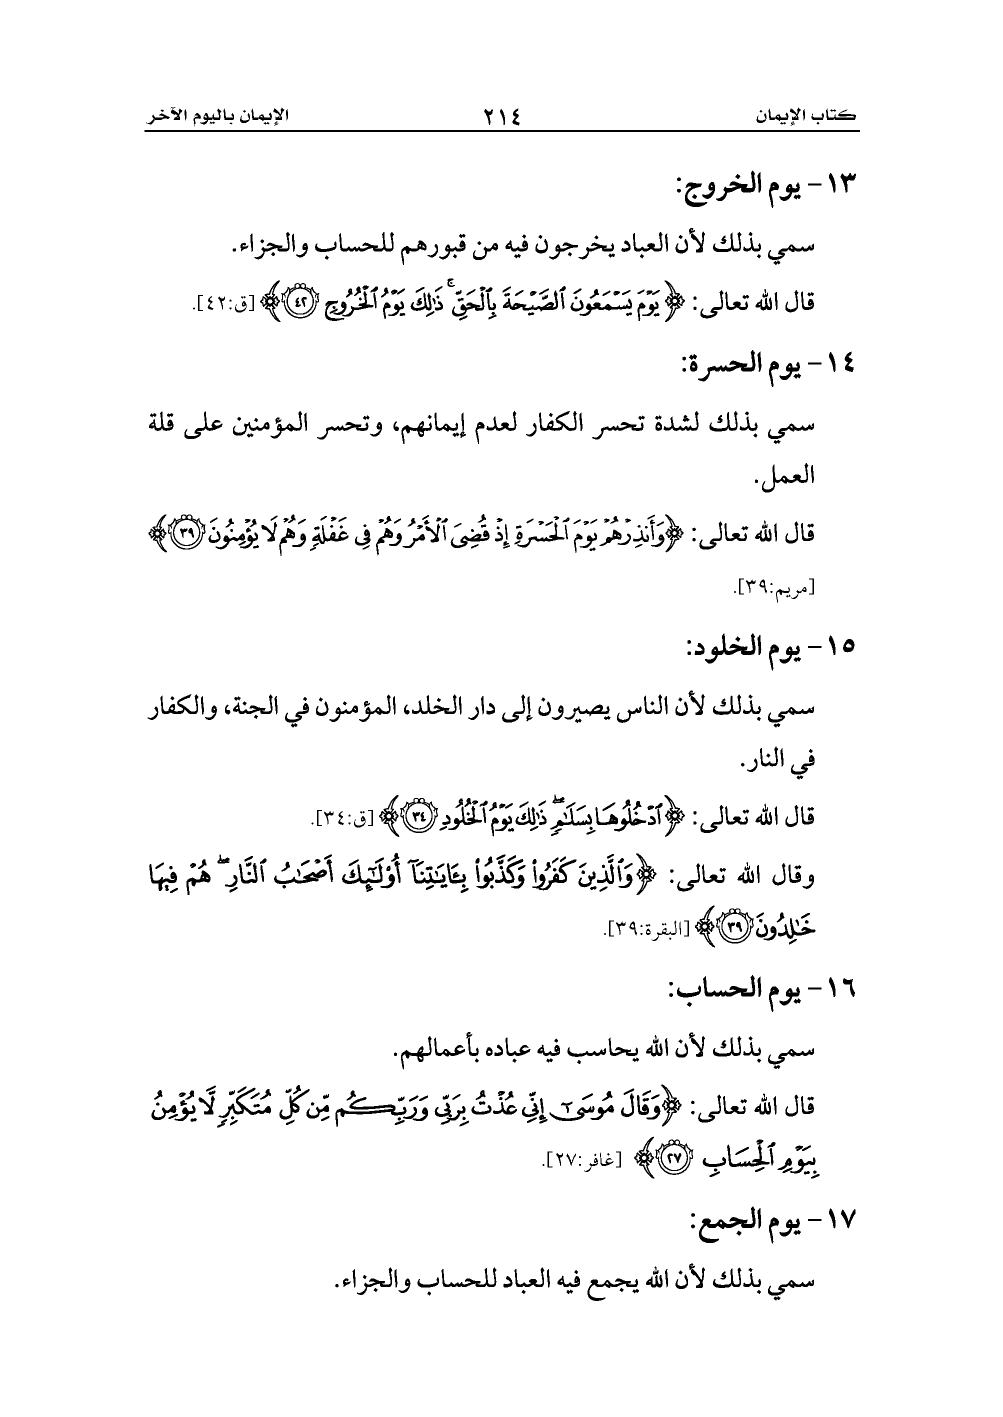 كتاب الإيمان ٢١٤ الإيمان باليوم الآخر
١٣ - يوم الخروج:
سمي بذلك لأن العباد يخرجون فيه من قبورهم للحساب والجزاء.
قال الله تعالى: ﴿يَوْمَ يَسْمَعُونَ ٱلصَّيْحَةَ بِٱلْحَقِّ ۚ ذَٰلِكَ يَوْمُ ٱلْخُرُوجِ ٤٢﴾ [ق:٤٢].
١٤ - يوم الحسرة:
سمي بذلك لشدة تحسر الكفار لعدم إيمانهم، وتحسر المؤمنين على قلة
العمل.
قال الله تعالى: ﴿وَأَنذِرْهُمْ يَوْمَ ٱلْحَسْرَةِ إِذْ قُضِىَ ٱلْأَمْرُ وَهُمْ فِى غَفْلَةٍ وَهُمْ لَا يُؤْمِنُونَ ٣٩﴾
[مريم:٣٩].
١٥ - يوم الخلود:
سمي بذلك لأن الناس يصيرون إلى دار الخلد، المؤمنون في الجنة، والكفار
في النار.
قال الله تعالى: ﴿ٱدْخُلُوهَا بِسَلَٰمٍ ۖ ذَٰلِكَ يَوْمُ ٱلْخُلُودِ ٣٤﴾ [ق:٣٤].
وقال الله تعالى: ﴿وَٱلَّذِينَ كَفَرُوا۟ وَكَذَّبُوا۟ بِـَٔايَٰتِنَآ أُو۟لَٰٓئِكَ أَصْحَٰبُ ٱلنَّارِ ۖ هُمْ فِيهَا
خَٰلِدُونَ ٣٩﴾ [البقرة:٣٩].
١٦ - يوم الحساب:
سمي بذلك لأن الله يحاسب فيه عباده بأعمالهم.
قال الله تعالى: ﴿وَقَالَ مُوسَىٰٓ إِنِّى عُذْتُ بِرَبِّى وَرَبِّكُم مِّن كُلِّ مُتَكَبِّرٍ لَّا يُؤْمِنُ
بِيَوْمِ ٱلْحِسَابِ ٢٧﴾ [غافر:٢٧].
١٧ - يوم الجمع:
سمي بذلك لأن الله يجمع فيه العباد للحساب والجزاء.